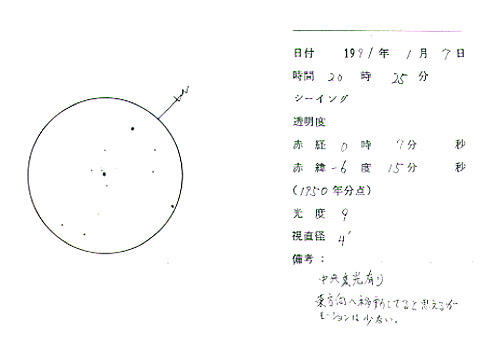 N
日付 1991年 1月 7日
時間 20時 25分
シーイング
透明度
赤経 0時 7分 秒
赤緯 -6度 15分 秒
(1950年分点)
光度 9
視直径 4'
備考:
中央集光有り
東方向へ移動してると思えるが
モーションは少ない。